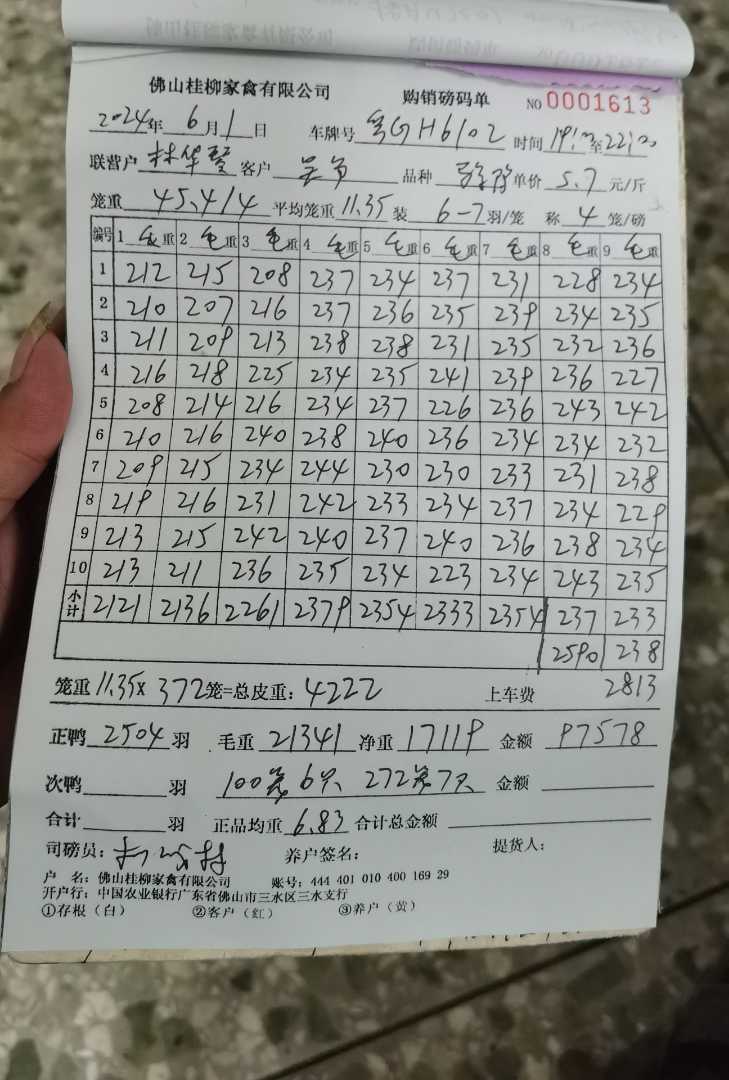 佛山桂柳家禽有限公司 购销磅码单 NO 0001613
2024年 6月1日 车牌号 H6102 时间 至
联营户 林华 客户 品种 单价 5.7 元/斤
笼重 45.414 平均笼重 11.35 装 6-7羽/笼 称 4 笼/磅
编号 1 毛重 2 毛重 3 毛重 4 毛重 5 毛重 6 毛重 7 毛重 8 毛重 9 毛重
1 212 215 208 237 234 237 231 228 234
2 210 207 216 237 236 235 239 234 235
3 211 209 213 238 238 231 235 232 236
4 216 218 225 234 235 241 239 236 227
5 208 214 216 234 237 226 236 243 242
6 210 216 240 238 240 236 234 234 232
7 209 215 234 244 230 230 233 231 238
8 219 216 231 242 233 234 237 234 229
9 213 215 242 240 237 240 236 238 234
10 213 211 236 235 234 223 234 243 235
小计 2121 2136 2261 2379 2354 2333 2354 237 233
2590 238
笼重 11.35× 372笼=总皮重: 4222 上车费 2813
正鸭 2504 羽 毛重 21341 净重 17119 金额 97578
次鸭 羽 100笼6只 272笼7只 金额
合计 羽 正品均重 6.83 合计总金额
司磅员: 养户签名: 提货人:
户 名: 佛山桂柳家禽有限公司 账号: 444 401 010 400 169 29
开户行: 中国农业银行广东省佛山市三水区三水支行
①存根(白) ②客户(红) ③养户(黄)